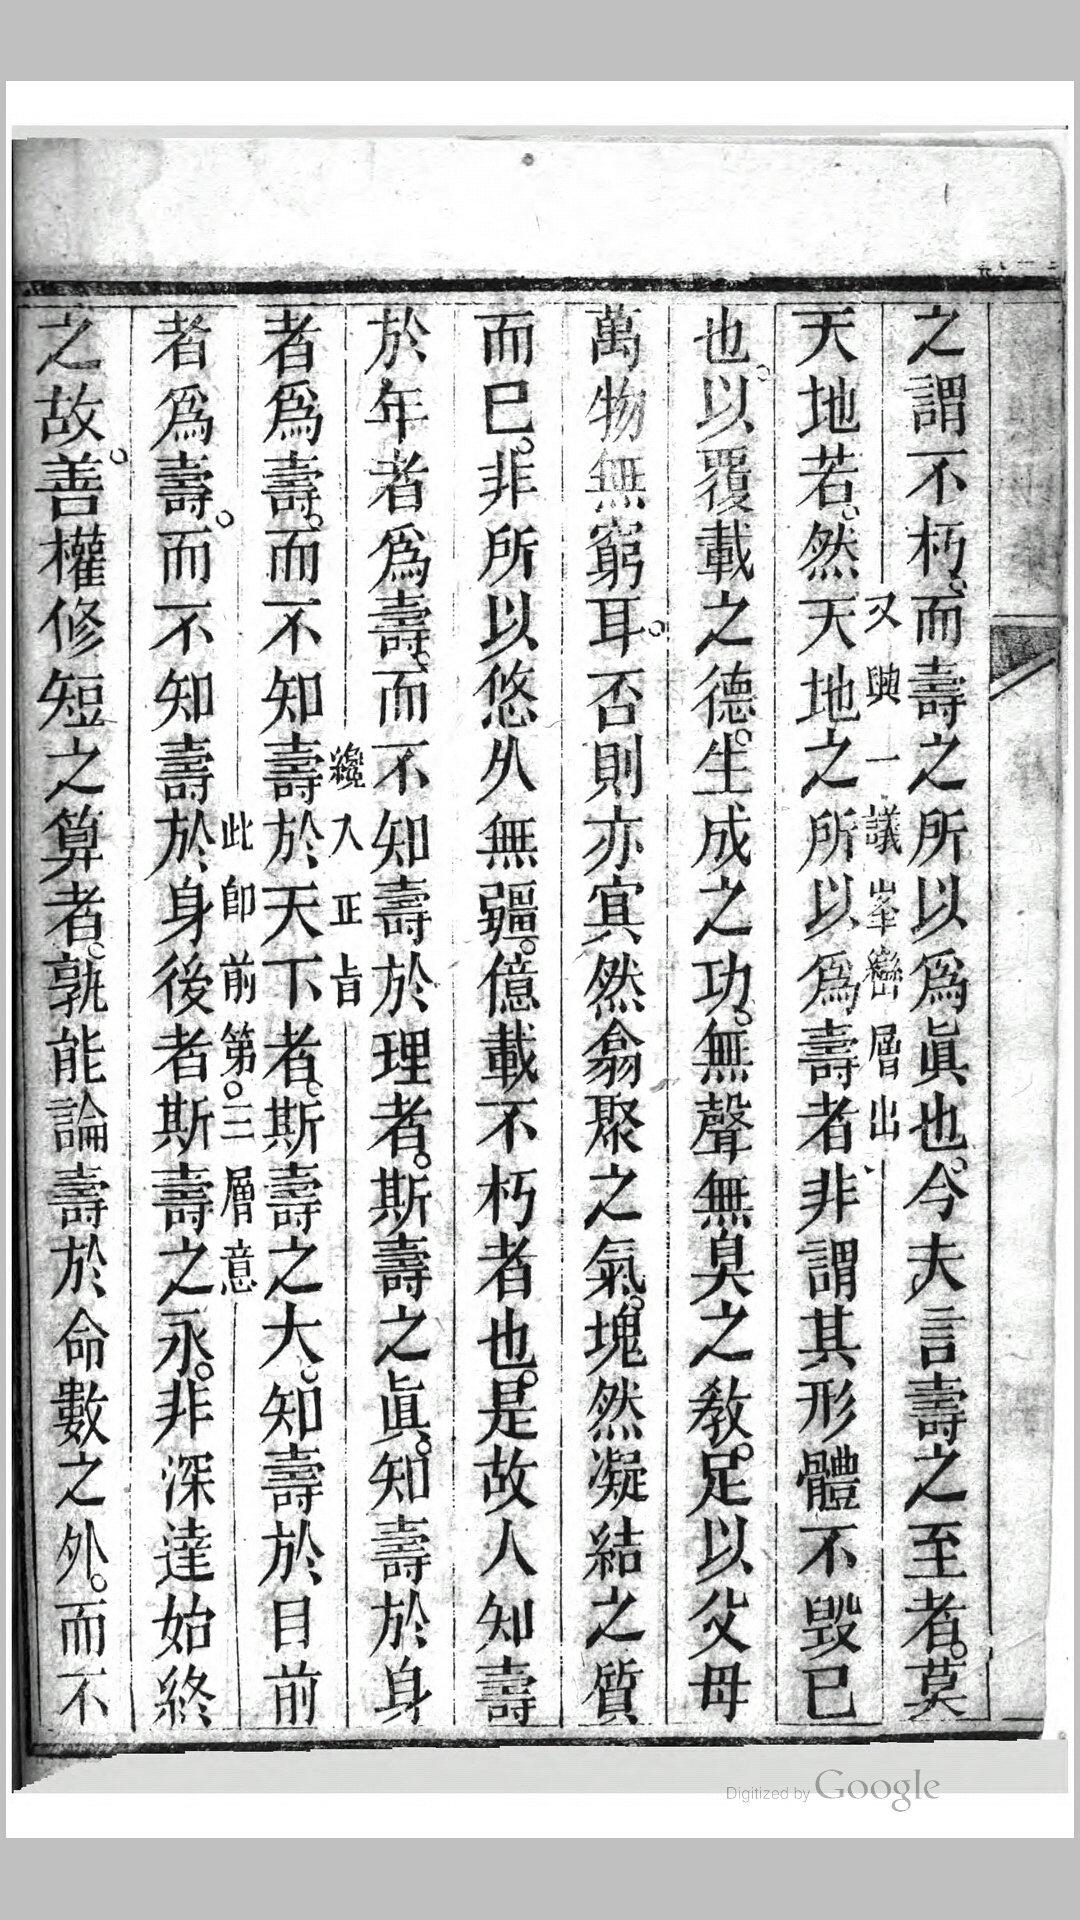 之謂不朽。而壽之所以爲眞也。今夫言壽之至者。莫
又興一議峯巒層出
天地若。然天地之所以爲壽者。非謂其形體不毀已
也。以覆載之德。生成之功。無聲無臭之教。足以父母
萬物無窮耳。否則亦宜然翕聚之氣。塊然凝結之質
而已。非所以悠久無疆。億載不朽者也。是故人知壽
於年者爲壽。而不知壽於理者。斯壽之眞。知壽於身
纔入正旨
者爲壽。而不知壽於天下者。斯壽之大。知壽於目前
此卽前第三層意
者爲壽。而不知壽於身後者。斯壽之永。非深達始終
之故。善權修短之算者。孰能論壽於命數之外。而不
Digitized by Google